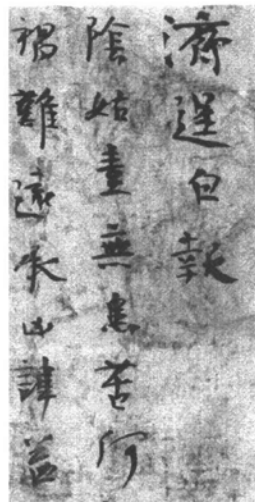 濟逞白報
陰姑素無患苦何
禍難遠承凶諱益